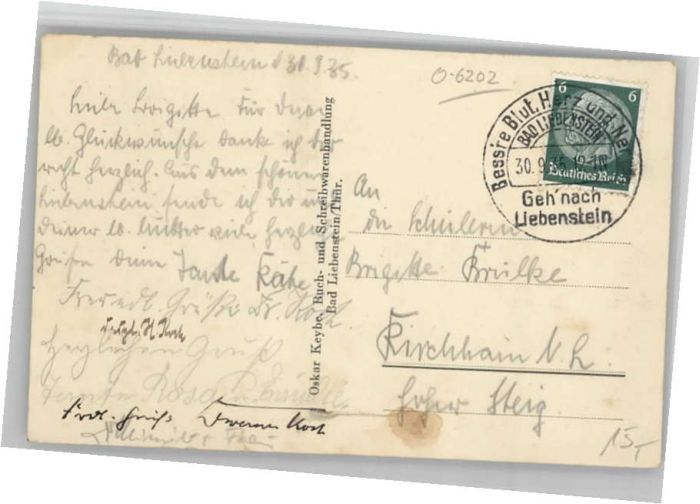 Bad Liebenstein d. 30.9.35.
O-6202
Liebe Brigitte Für Deine
lb. Glückwünsche danke ich Dir
recht herzlich. Aus dem schönen
Liebenstein sende ich Dir u.
Deiner lb. Mutter viele herzl.
Grüße Deine Tante Käthe
Freundl. Grüße Dr. Koch
H. Koch
Herzlichen Gruß
Tante Rosa u.
Frdl. Gruß Koch
Oskar Keybe, Buch- und Schreibwarenhandlung
Bad Liebenstein/Thür.
Bess're Blut, Herz und Ne
BAD LIEBENSTEIN
30.9.35.
Geh' nach
Liebenstein
6 6
Deutsches Reich
An
die Schülerin
Brigitte Brülke
Kirchhain N.L.
Hoher Steig
15,-